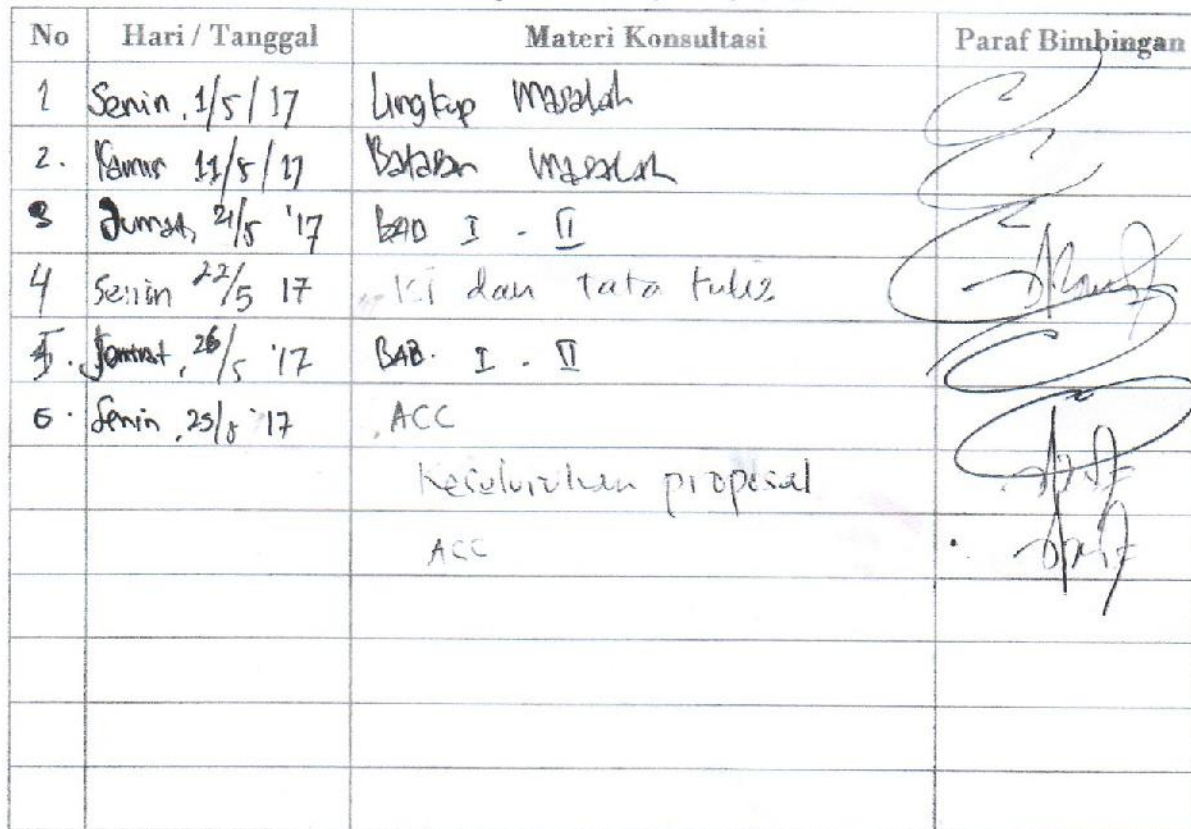 No Hari / Tanggal Materi Konsultasi Paraf Bimbingan
1 Senin, 1/5/17 Lingkup Masalah
2. Kamis 11/5/17 Batasan Masalah
3 Jumat, 21/5 '17 BAB I - II
4 Senin 22/5 17 dan tata tulis
Jumat, 26/5 '17 BAB. I - II
6. Senin, '17 ACC
Keseluruhan proposal
ACC